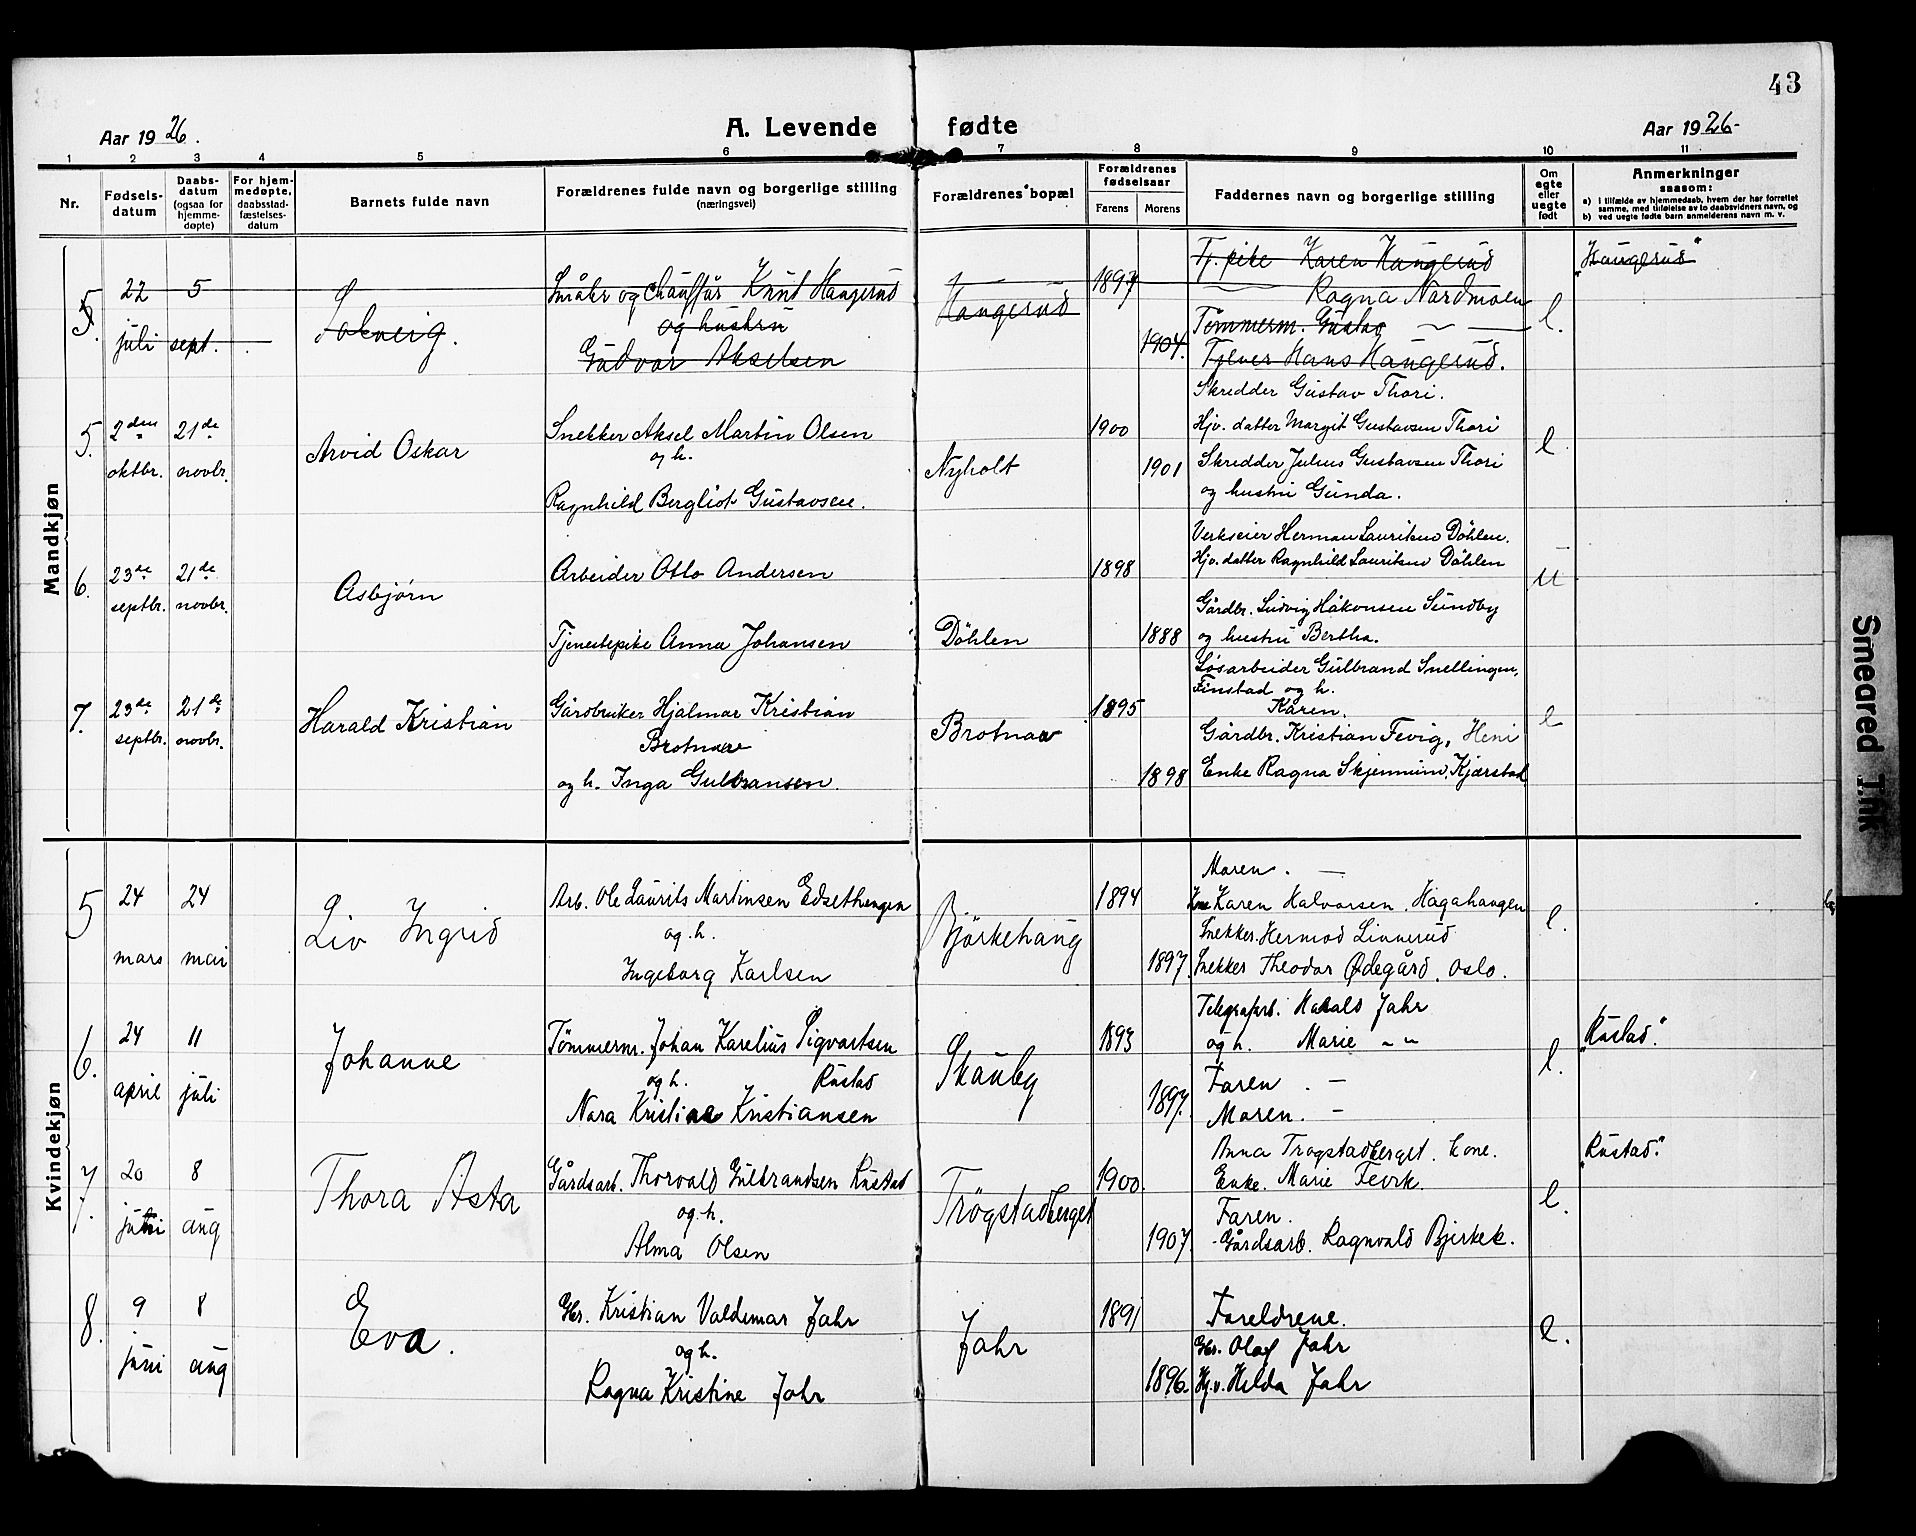 43
Aar 1926.
A. Levende fødte
Aar 1926.
1 2 3 4 5 6 7 8 9 10 11
Nr.
Fødsels-
datum
Daabs-
datum
(ogsaa for
hjemme-
døpte)
For hjem-
medøpte,
daabsstad-
fæstelses-
datum
Barnets fulde navn
Forældrenes fulde navn og borgerlige stilling
(næringsvei)
Forældrenes bopæl
Forældrenes
fødselsaar
Farens Morens
Faddernes navn og borgerlige stilling
Om
egte
eller
uegte
født
Anmerkninger
saasom:
a) i tilfælde av hjemmedaab, hvem der har forrettet
samme, med tilføielse av to daabsvidners navn, og
b) ved uegte fødte barn anmelderens navn m. v.
Mandkjøn
5.
22 juli
5 sept.
Solveig.
Småbr og chauffør Knut Haugerud
og hustru
Gudvor Akselsen
Haugerud
1897
1904.
Tj. pike Karen Haugerud
Ragna Nordmoen
Tømmerm. Gustav
Hans Haugerud.
e.
"Haugerud"
5.
2den oktbr.
21de novbr.
Arvid Oskar
Snekker Aksel Martin Olsen
og h.
Ragnhild Bergliot Gustavsen.
Nyholt
1900
1901
Skredder Gustav Thori.
Hjv. datter Margit Gustavsen Thori
Skredder Julius Gustavsen Thori
og hustru Gunda.
e.
6.
23de septbr.
21de novbr.
Asbjørn
Arbeider Otto Andersen
Tjenestepike Anna Johansen
Döhlen
1898
1888
Verkseier Herman Lauritsen Döhlen.
Hjv. datter Ragnhild Lauritsen Döhlen
Gårdbr. Ludvig Håkonsen Sundby
og hustru Bertha.
u
7.
23de septbr.
21de novbr.
Harald Kristian
Gårdbruker Hjalmar Kristian
Brotnov
og h. Inga Gulbransen.
Brotnov
1895
1898
Løsarbeider Gulbrand Snellingen,
Finstad og h.
Karen.
Gårdbr. Kristian Fevig, Heni
Enke Ragna Skjennum, Kjærstad
e
Kvindekjøn
5
24 mars
24 mai
Liv Ingrid
Arb. Ole Laurits Martinsen Edsethengen
og h.
Ingeborg Karlsen
Bjørkehaug
1894
1897.
Moren. —
Karen Halvorsen. Hagahaugen
Snekker. Hermod Linnerud
Snekker Theodor Ødegård. Oslo.
e.
6.
24 april
11 juli
Johanne
Tømmerm. Johan Karelius Sigvartsen
og h. Rustad
Nora Kristine Kristiansen
Skauby
1893
1897.
Telegrafarb. Harald Jahr
og h. Marie " "
Faren. —
Moren. —
e.
"Rustad".
7.
20 juni
8 aug
Thora Asta
Gårdsarb. Thorvald Gulbrandsen Rustad
og h.
Alma Olsen
Trøgstadberget
1900.
1907.
Anna Trøgstadberget. kone.
Enke. Marie
Faren.
Gårdsarb. Ragnvald Bjerkek.
e.
"Rustad".
8.
9 juni
8 aug
Eva.
Gbr. Kristian Valdemar Jahr
og h.
Ragna Kristine Jahr
Jahr
1891
1896.
Foreldrene.
Gbr. Olaf Jahr
Hj.v. Helda Jahr
e.
Smeared Ink